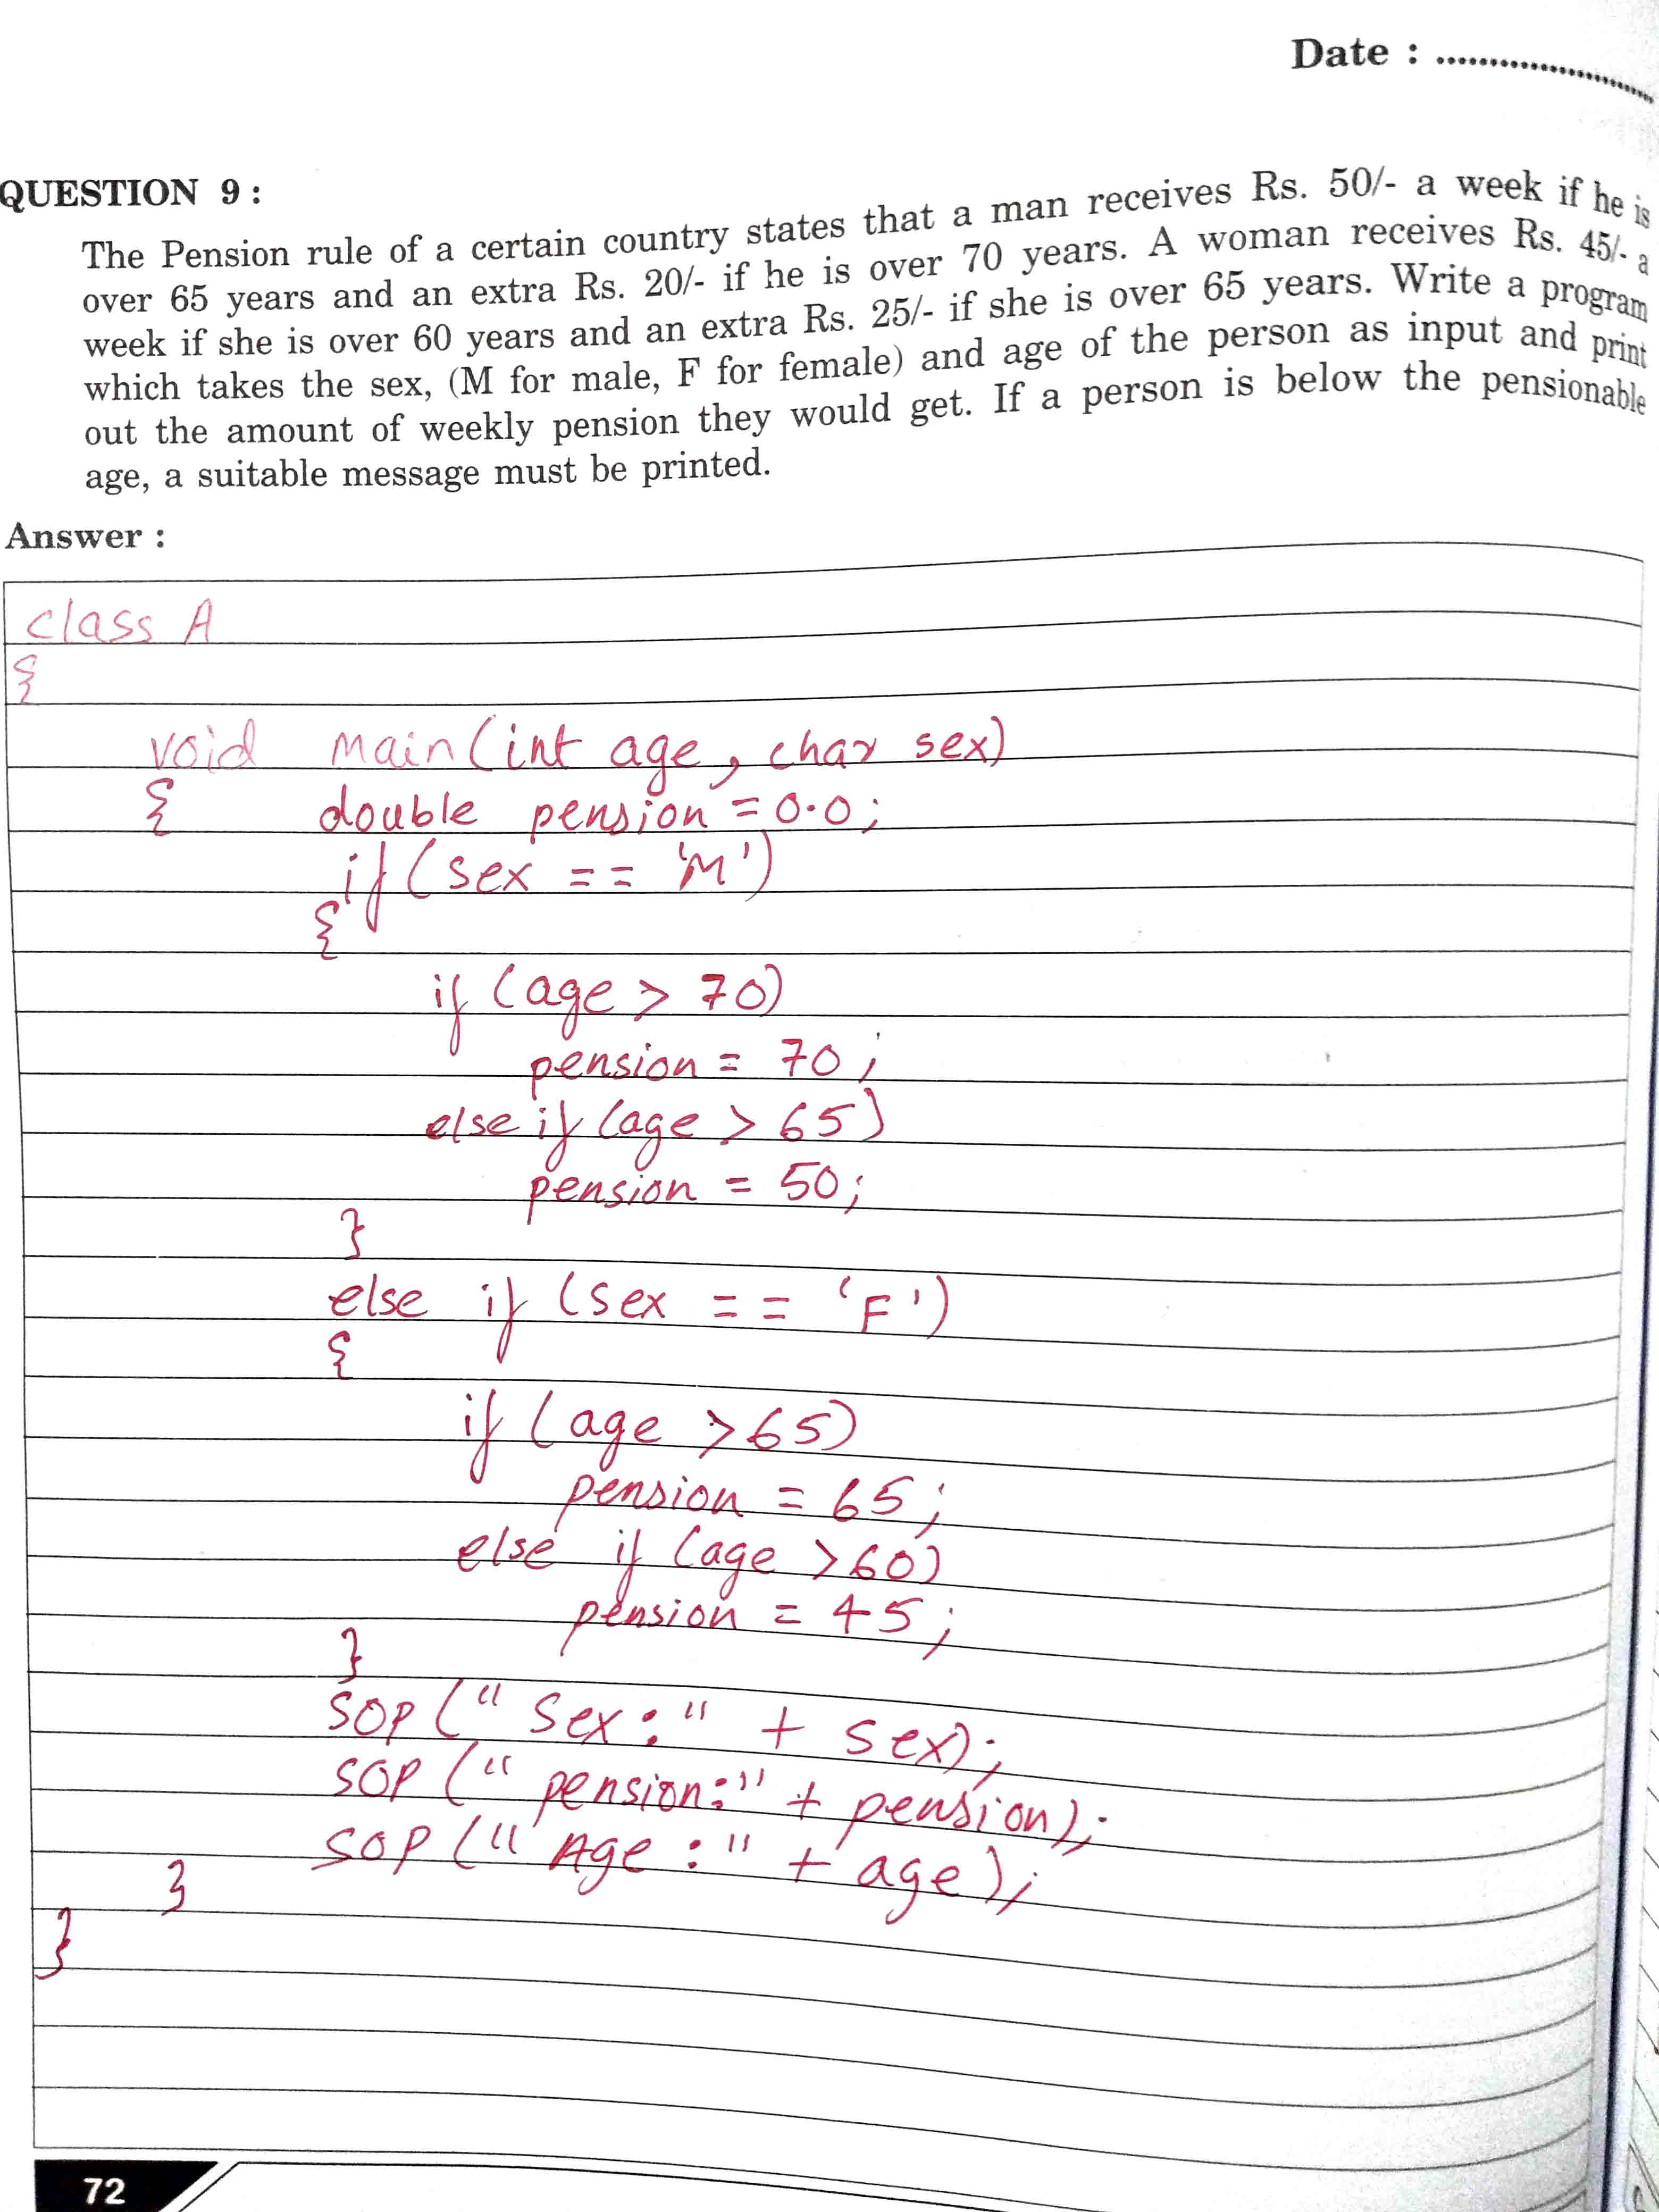 Date : ........................
QUESTION 9 :
The Pension rule of a certain country states that a man receives Rs. 50/- a week if he is
over 65 years and an extra Rs. 20/- if he is over 70 years. A woman receives Rs. 45/- a
week if she is over 60 years and an extra Rs. 25/- if she is over 65 years. Write a program
which takes the sex, (M for male, F for female) and age of the person as input and print
out the amount of weekly pension they would get. If a person is below the pensionable
age, a suitable message must be printed.
Answer :
class A
{
void main(int age, char sex)
{ double pension = 0.0;
if (sex == 'M')
{
if (age > 70)
pension = 70;
else if (age > 65)
pension = 50;
}
else if (sex == 'F')
{
if (age >65)
pension = 65;
else if (age >60)
pension = 45;
}
SOP (" Sex : " + sex);
SOP (" pension:" + pension);
SOP (" Age : " + age);
}
}
72